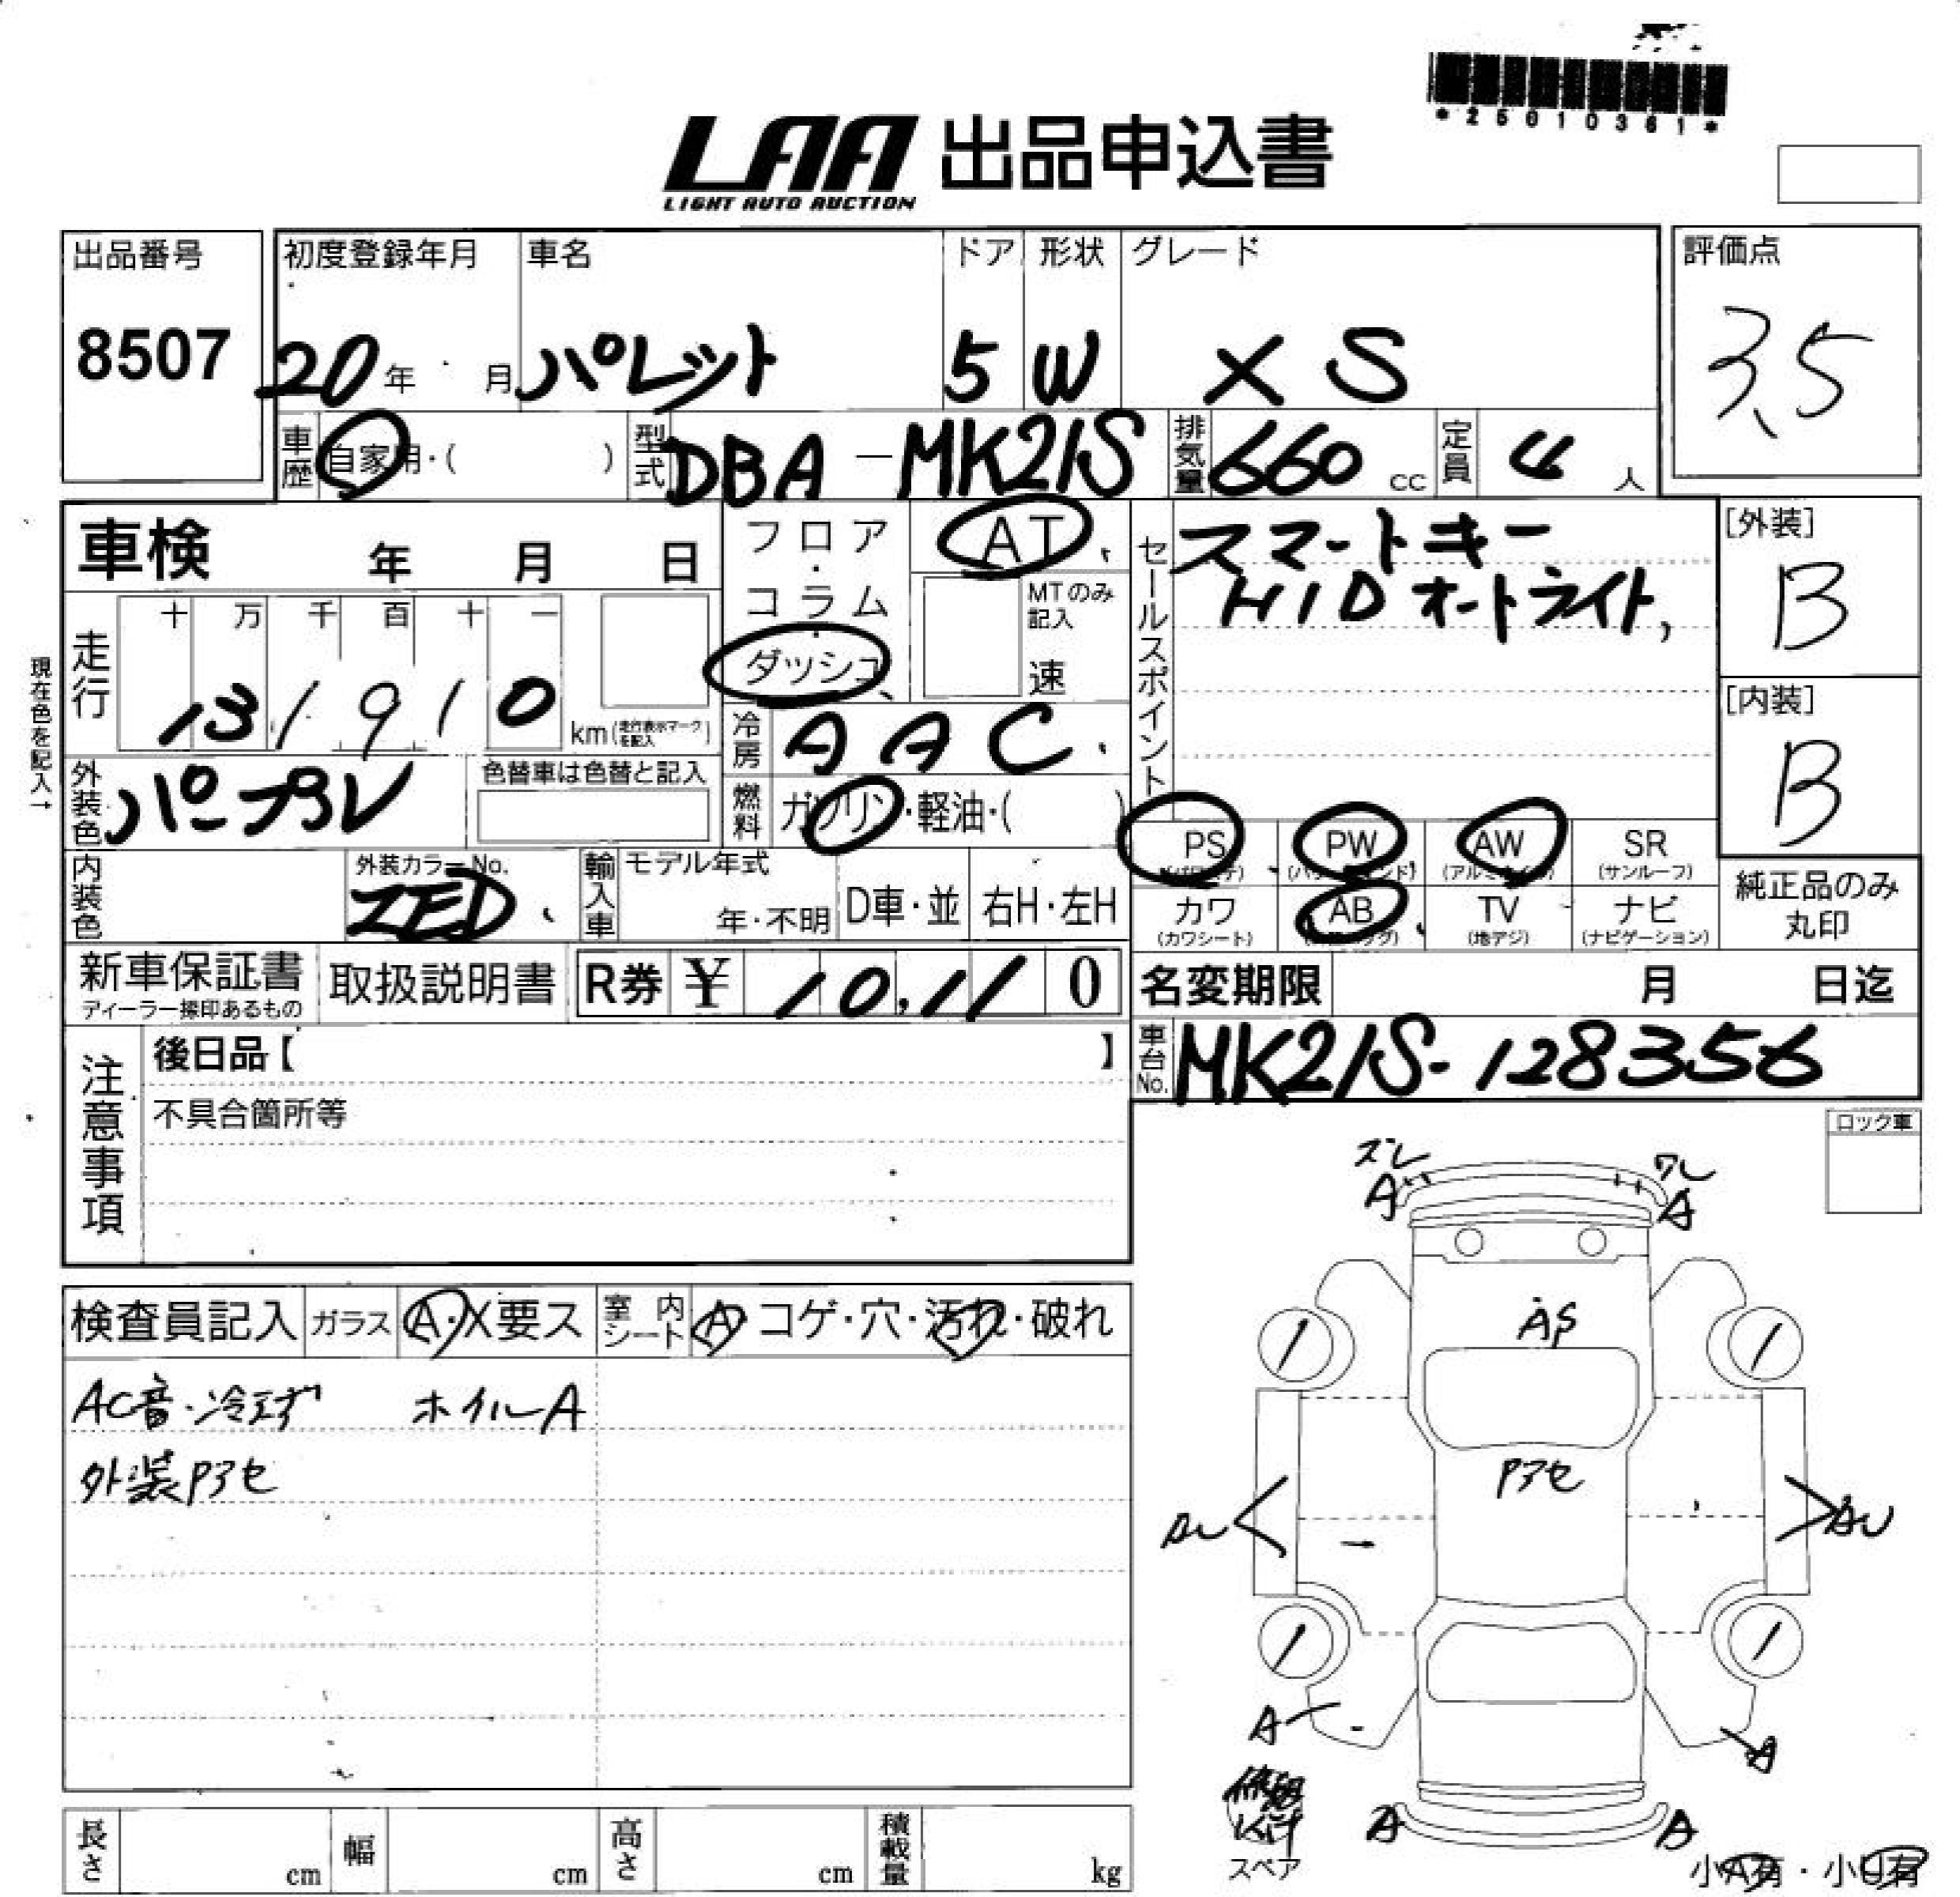 *25010361*
LAA 出品申込書
LIGHT AUTO AUCTION
出品番号 初度登録年月 車名 ドア 形状 グレード 評価点
8507 20年 月 パレット 5 W XS 3.5
車歴 自家用・( ) 型式 DBA-MK21S 排気量 660 cc 定員 4 人
車検 年 月 日 フロア・コラム・ダッシュ AT MTのみ記入 速
セールスポイント スマートキー
HID オートライト,
[外装] B
現在色を記入→
走行 十 万 千 百 十 一
131910 km(走行表示マークを記入)
冷房 AAC
[内装] B
外装色 パープル 色替車は色替と記入 燃料 ガソリン・軽油・( )
PS PW AW SR
(パワステ) (パワーウインド) (アルミホイル) (サンルーフ)
内装色 外装カラーNo. ZED 輸入車 モデル年式 年・不明 D車・並 右H・左H
カワ AB TV ナビ
(カワシート) (エアバッグ) (地デジ) (ナビゲーション)
純正品のみ
丸印
新車保証書 取扱説明書 R券 ¥ 10,110 名変期限 月 日迄
ディーラー捺印あるもの
注意事項 後日品【 】
車台No. MK21S-128356
不具合箇所等
ロック車
ズレ ワレ
A A
検査員記入 ガラス A・X要ス 室内シート A コゲ・穴・汚れ・破れ
AC音・冷エズ ホイルA
外装Pアセ
AS
Pアセ
AU AU
A A
A A
修理
Kit
スペア
小A有・小U有
長さ cm 幅 cm 高さ cm 積載量 kg